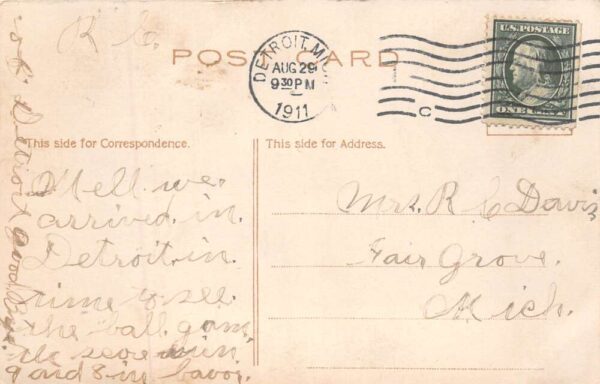 R C.
POST CARD
DETROIT, MICH
AUG 29
9 30 PM
1911
C
U.S. POSTAGE
ONE CENT
This side for Correspondence.
This side for Address.
Well we
arrived in.
Detroit. in.
time to see
the ball gam
9 and 8 in favor.
of Detroit
Mrs. R C Davis
Fair Grove.
Mich.